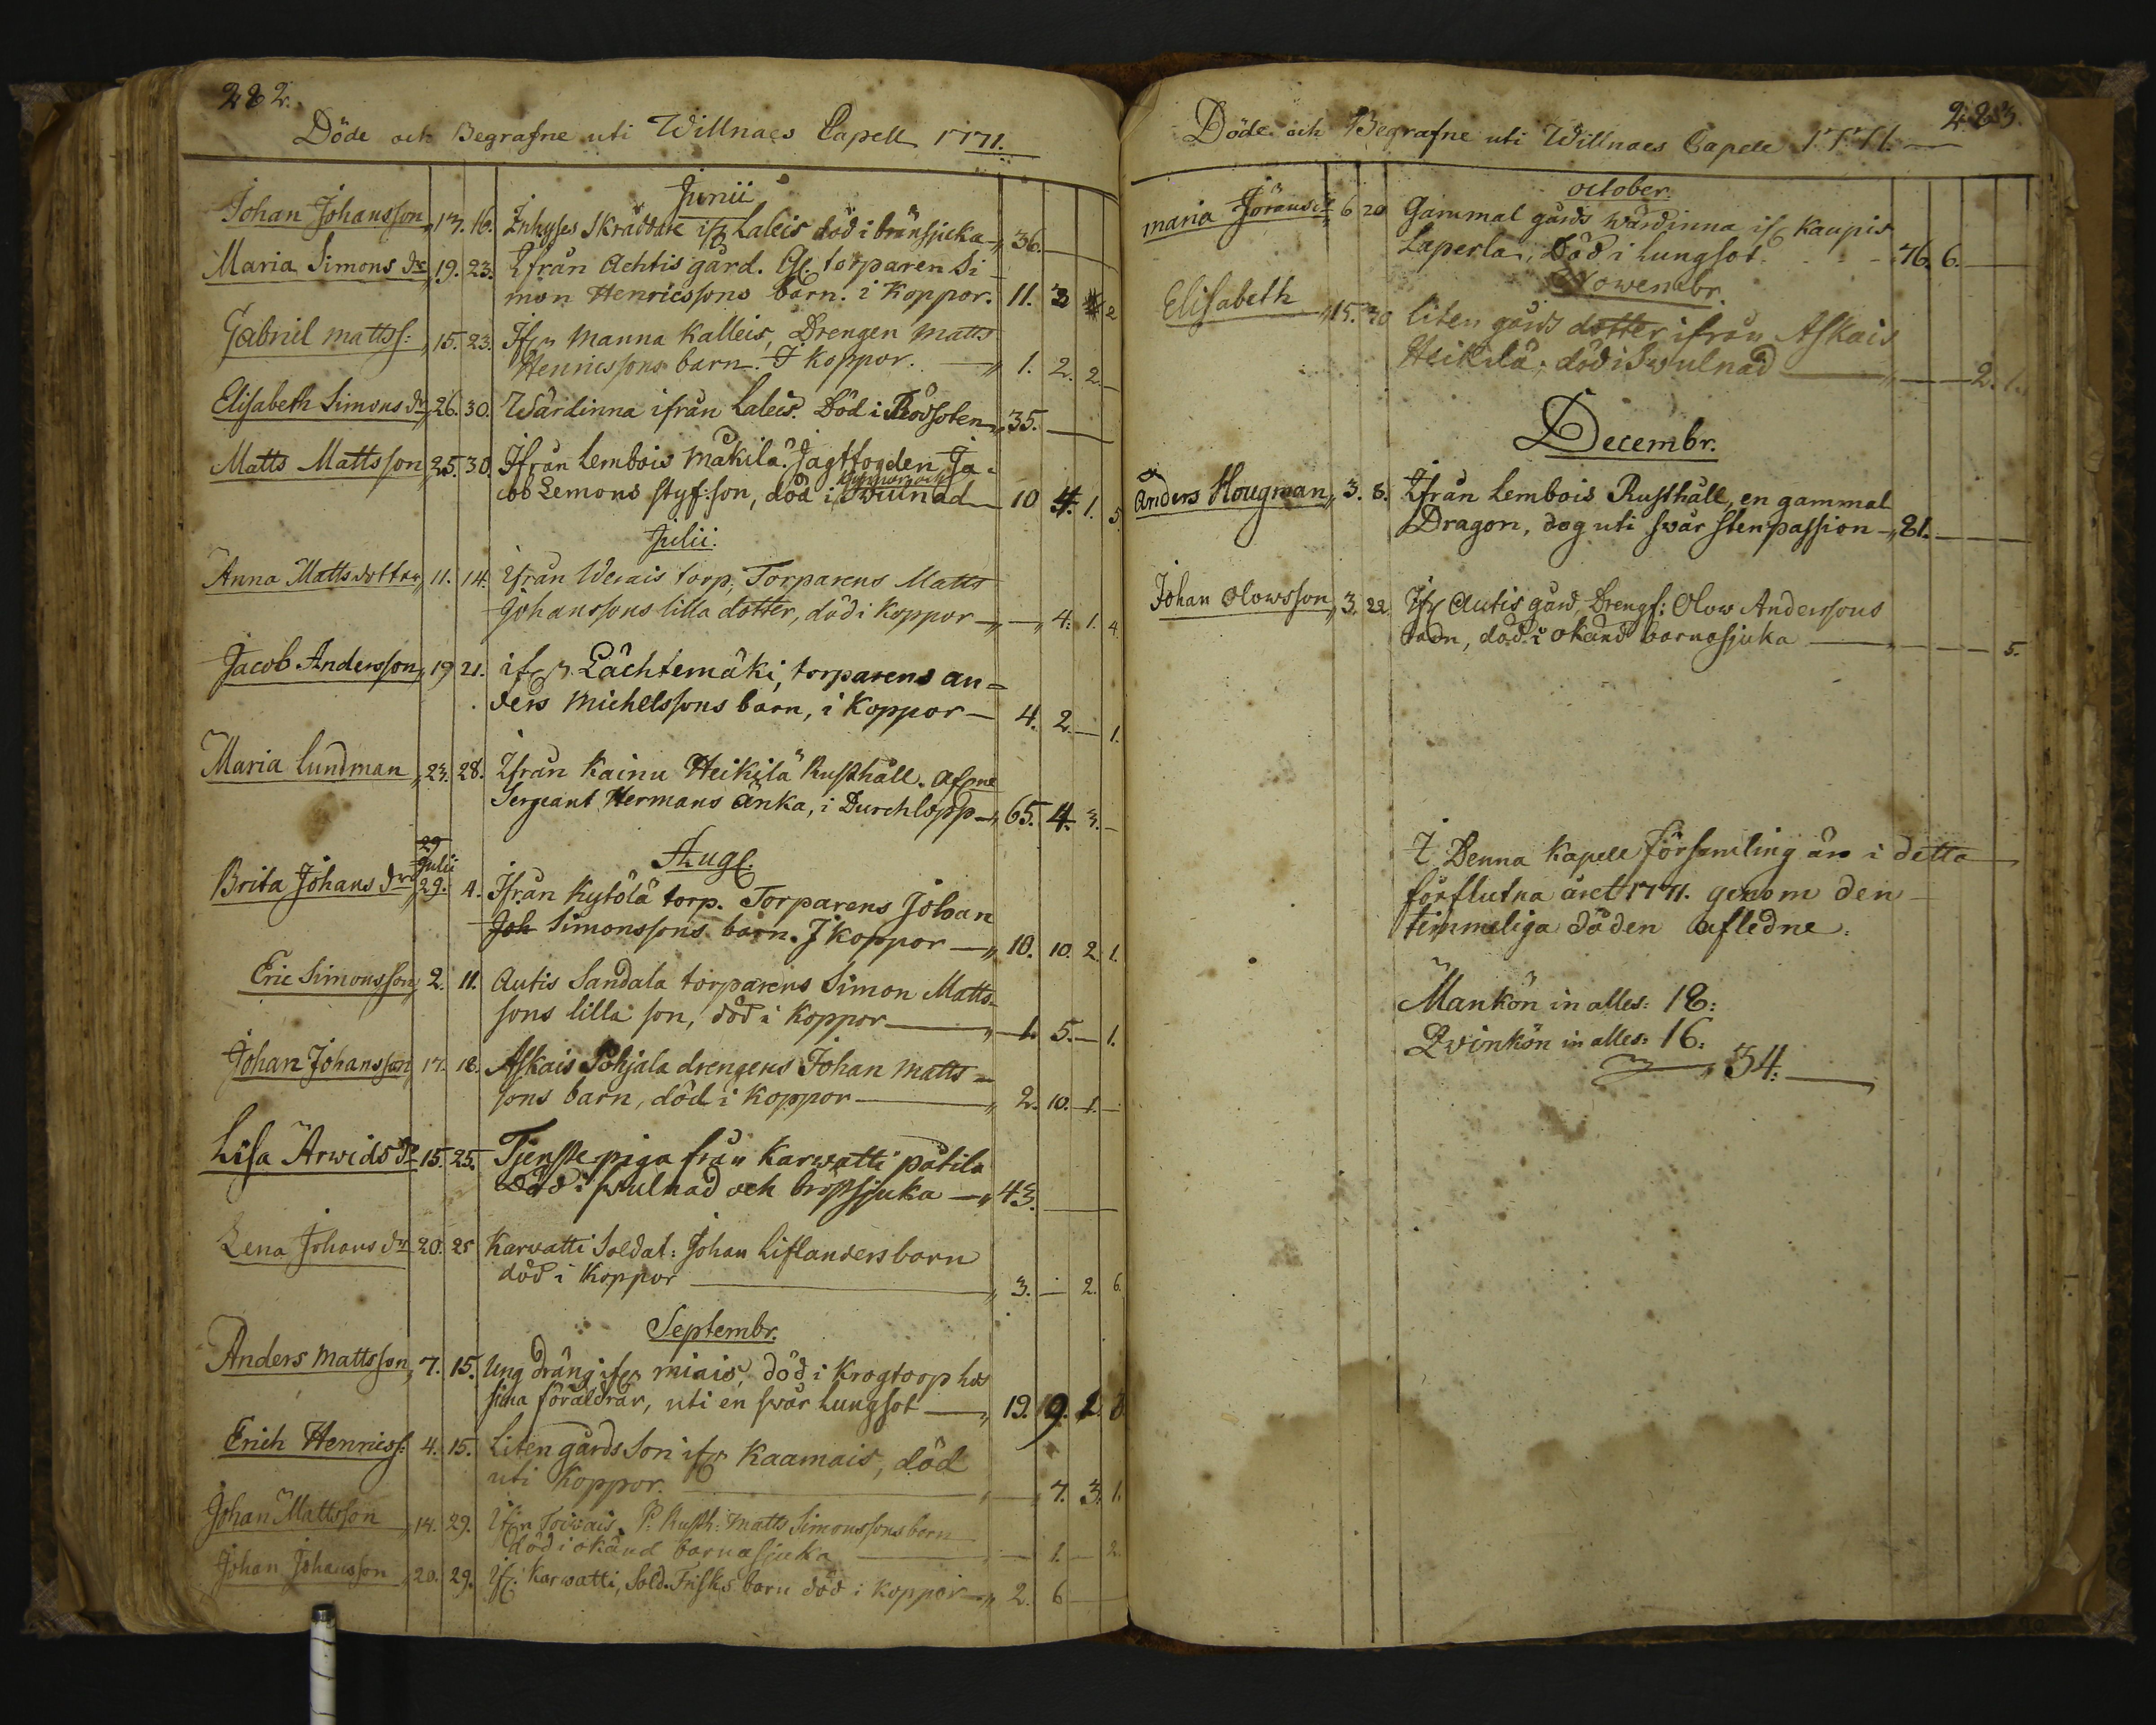 282.
Döde och Begrafne uti Willnaes Capell 1771.
Junii
Johan Johansson 13. 16. Inhyses Skräddare ifr Laleis död i bränsjuka 36.
Maria Simons dr 19. 23. Ifrån Achtis gård. Gl. torparen Si-
mon Henricssons barn. i Koppor. 11. 3 2
Gabriel Mattss: 15. 23. Ifrn Manna Kalleis, Drengen Matts
Henricssons barn. I Koppor. 1. 2. 2.
Elisabeth Simons dr 26. 30. Wärdinna ifrån Laleis. Död i Rödsoten 35.
Matts Mattsson 25. 30. Ifrån Lembois Mäkilä. Jagtfogden Ja-
cob Lemons styf:son, död i Swulnad 10 4. 1. 5
Julii.
Anna Mattsdotter 11. 14. Ifrån Werais torp, Torparens Matts
Johanssons lilla dotter, död i Koppor 4. 1. 4.
Jacob Andersson 19 21. ifrn Lächtemäki, torparens an=
ders Michelssons barn, i Koppor 4. 2. 1.
Maria Lundman 23. 28. Ifrån Kainu Heikilä Rusthåll. Afne
Sergeant Hermans änka, i Durchlopp 65. 4. 3.
29
Julii
Aug.
Brita Johans dr 29. 4. Ifrån Kytölä torp. Torparens Johan
Joh Simonssons barn. I Koppor 10. 10. 2. 1.
Eric Simonsson 2. 11. Autis Sandala torparens Simon Matts-
sons lilla son, död i Koppor 1. 5. 1.
Johan Johansson 17. 18. Askais Pohjala drengens Johan Matts=
sons barn, död i Koppor 2. 10. 1.
Lisa Arwids dr 15. 25. Tjenste piga från Karwatti påtila
Död i swulnad och bröstsjuka 43.
Lena Johans dr 20. 25 Karvatti Soldat: Johan Liflanders barn
död i Koppor 3. 2. 6.
Septembr.
Anders Mattsson 7. 15. Ung dräng ifr miais, död i Krogtorp hos
sina föräldrar, uti en swår Lungsot 19. 9. 2. 3
Erich Henricss: 4. 15. Liten gårds Son ifr Kaamais, död
uti Koppor. 7. 3. 1.
Johan Mattsson 14. 29. Ifrn Toiwais, Rusth: Matts Simonssons barn
död i okänd barnasjuka 1. 2.
Johan Johansson 20. 29. If. Karwatti, Sold. Frisks barn död i Koppor 2. 6
283.
Döde och Begrafne uti Willnaes Capell 1771.
October.
Maria Jörans dr 6 20 Gammal gårds wärdinna if Kaupis
Laperla, Död i Lungsot 76. 6.
Nowembr.
Elisabeth 15. 30 liten gårds dotter ifrån Askais
Heikilä, död i Swulnad 2. 1.
Decembr.
Anders Hougman 3. 8. Ifrån Lembois Rusthåll, en gammal
Dragon, dog uti swår stenpassion 81.
Johan Olowsson 3. 22 Ifr Autis gård, Drengs: Olow Anderssons
barn, död i okänd barnasjuka 5.
I Denna Kapell Församling äro i detta
förflutna året 1771. genom den
timmeliga döden afledne.
Mankön in alles: 18:
Qvinkön in alles: 16:
34: